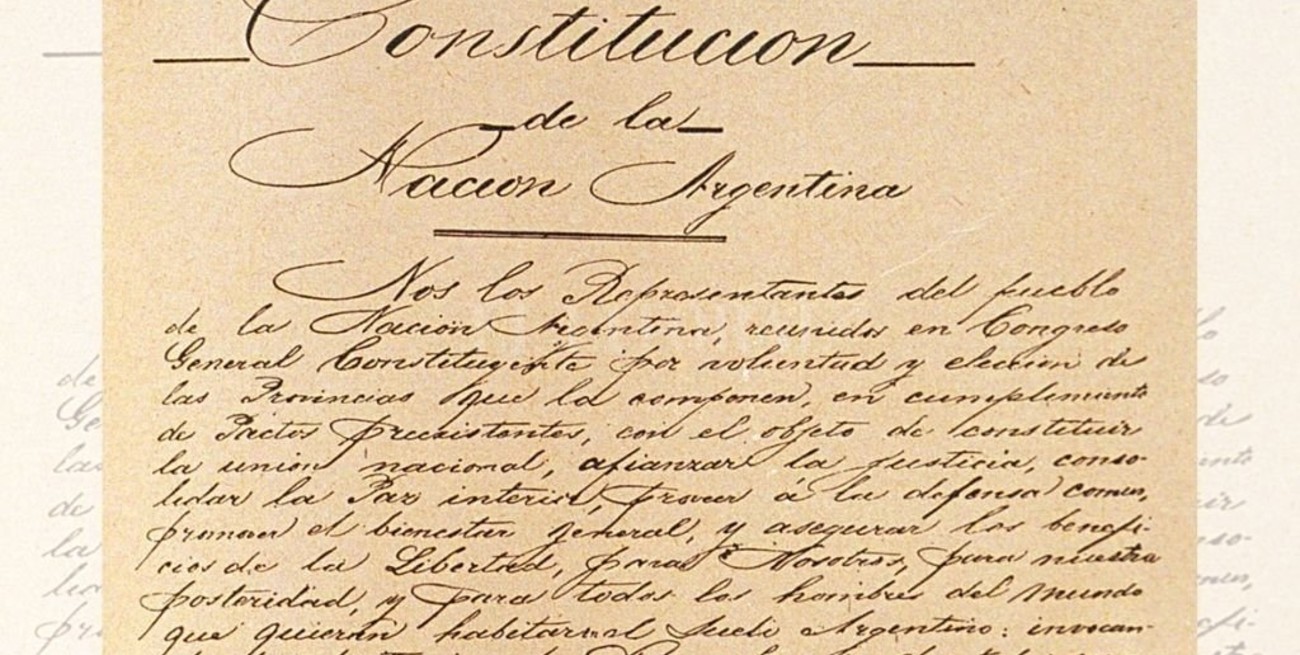 Constitucion
de la
Nacion Argentina
Nos los Representantes del pueblo
de la Nacion Argentina, reunidos en Congreso
General Constituyente por voluntad y eleccion de
las Provincias que la componen, en cumplimiento
de Pactos preexistentes, con el objeto de constituir
la union nacional, afianzar la justicia, conso-
lidar la Paz interior, proveer á la defensa comun,
promover el bienestar general, y asegurar los benefi-
cios de la Libertad, para Nosotros, para nuestra
posteridad, y para todos los hombres del mundo
que quieran habitar en el suelo Argentino: invocan-